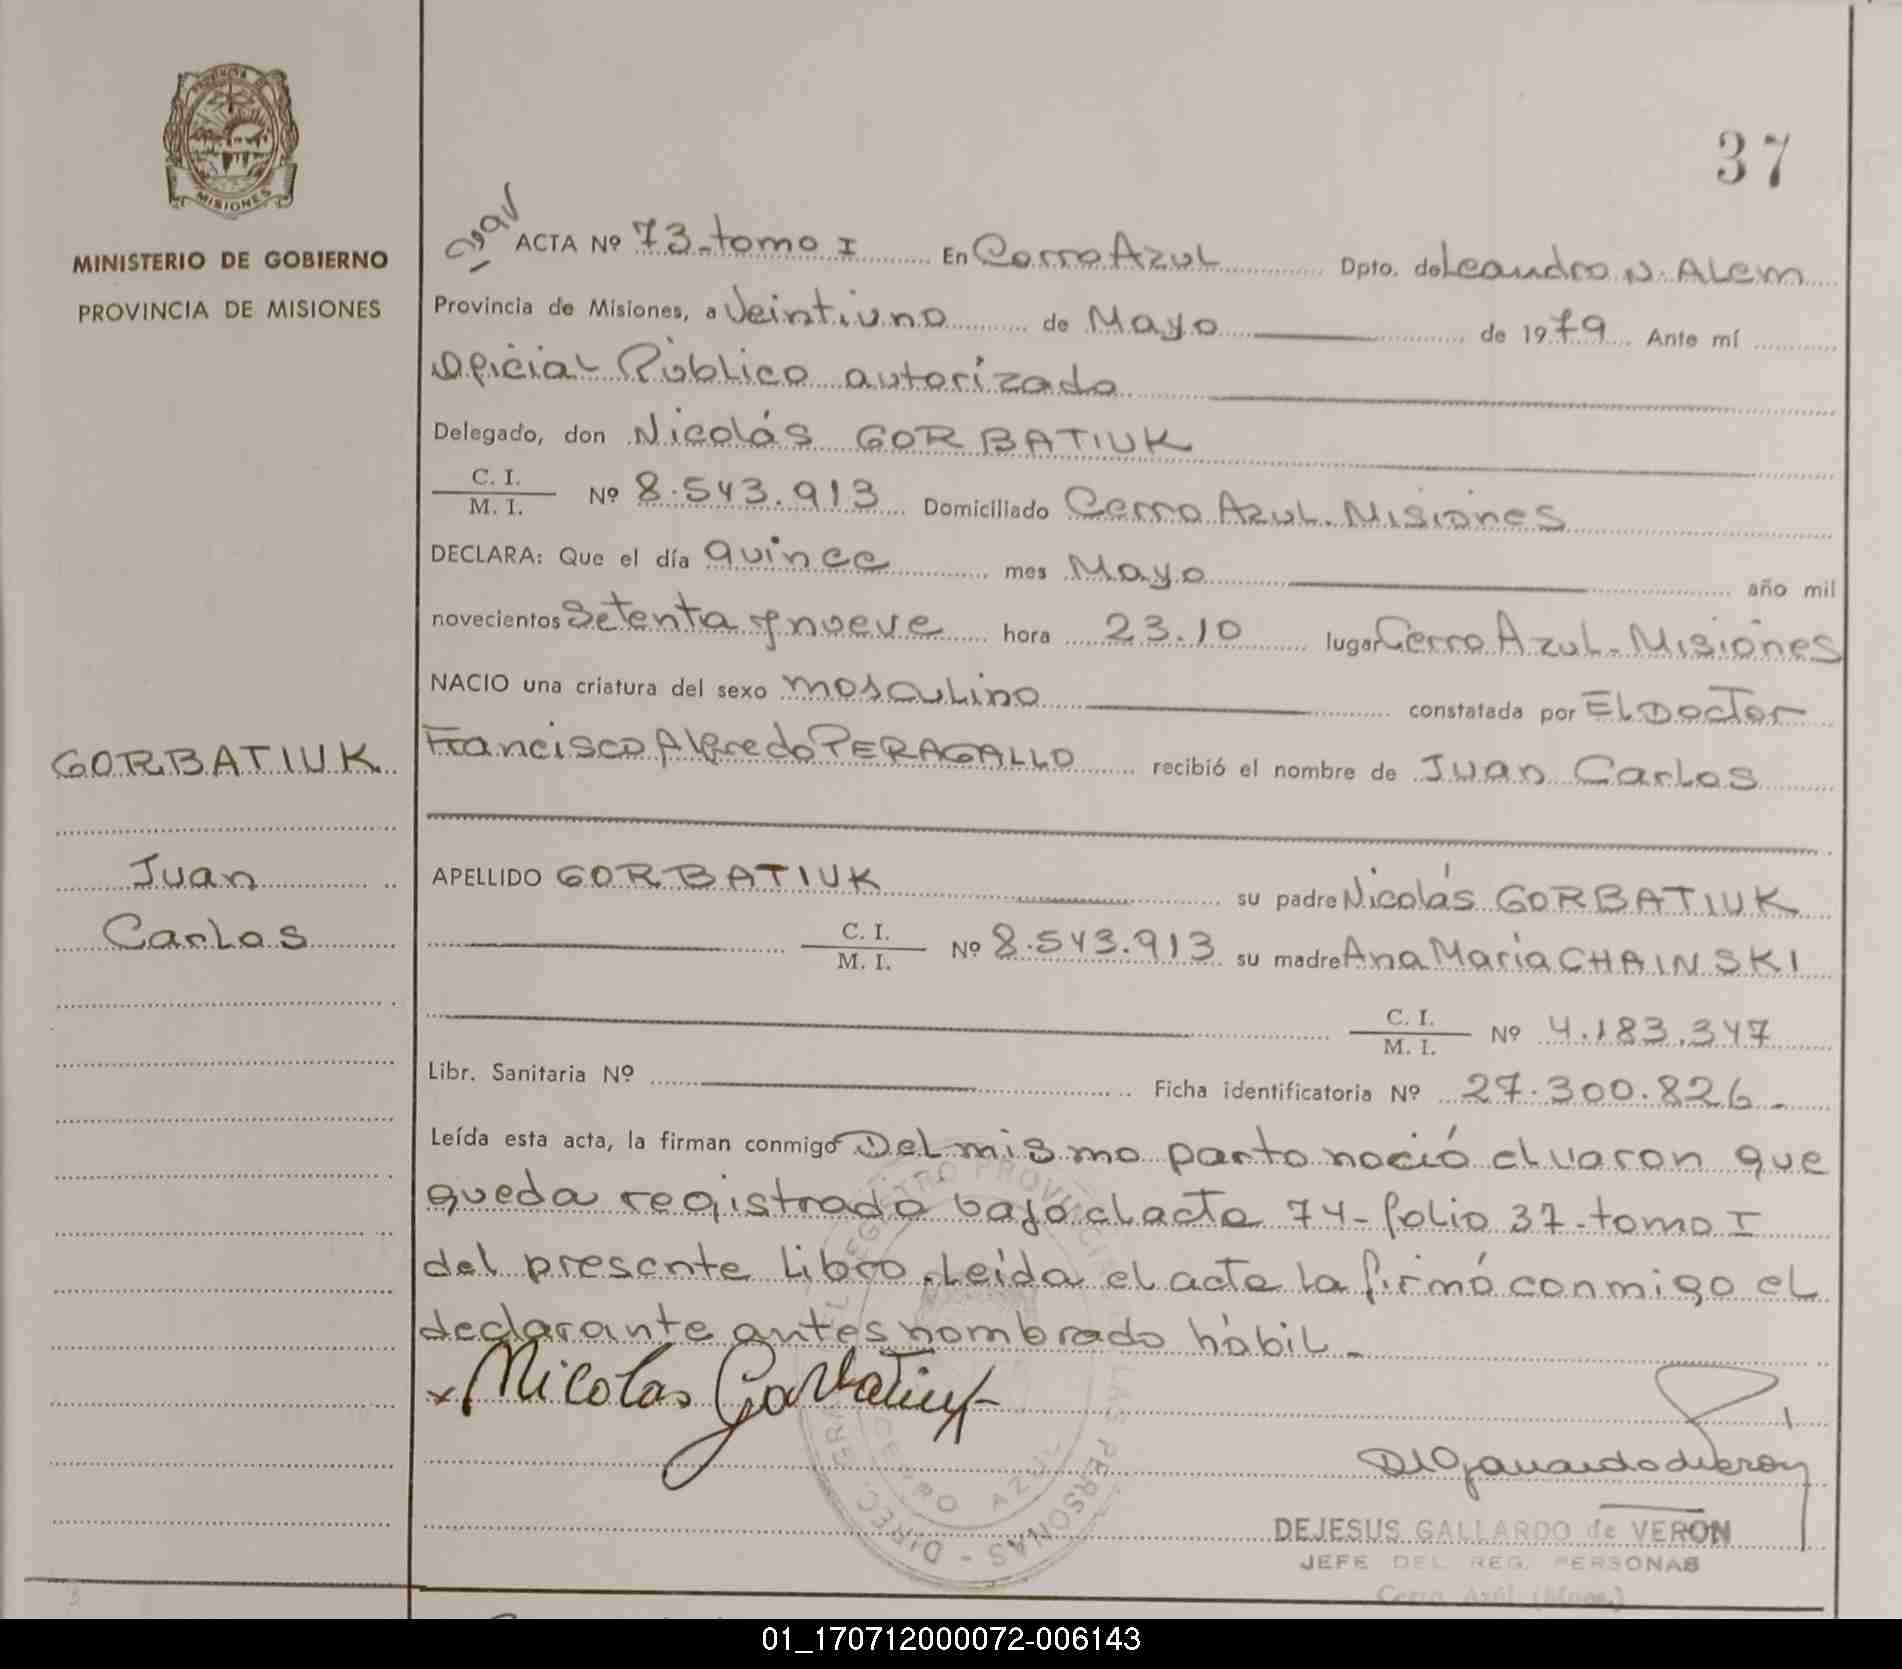 37
PROVINCIA DE
MISIONES
MINISTERIO DE GOBIERNO
PROVINCIA DE MISIONES
ACTA Nº 73-tomo I En Cerro Azul Dpto. de Leandro N. Alem
Provincia de Misiones, a Veintiuno de Mayo de 1979 Ante mí
Oficial Público autorizado
Delegado, don Nicolás GORBATIUK
C. I.
M. I. Nº 8.543.913 Domiciliado Cerro Azul. Misiones
DECLARA: Que el día quince mes Mayo año mil
novecientos Setenta y nueve hora 23.10 lugar Cerro Azul- Misiones
NACIO una criatura del sexo masculino constatada por El Doctor
Francisco Alfredo PERAGALLO recibió el nombre de Juan Carlos
GORBATIUK
Juan
Carlos
APELLIDO GORBATIUK su padre Nicolás GORBATIUK
C. I.
M. I. Nº 8.543.913 su madre Ana María CHAINSKI
C. I.
M. I. Nº 4.183.347
Libr. Sanitaria Nº Ficha identificatoria Nº 27.300.826.-
Leída esta acta, la firman conmigo Del mismo parto nació el varon que
queda registrado bajo el acta 74- folio 37-tomo I
del presente Libro. Leída el acta la firmó conmigo el
declarante antes nombrado hábil.-
x Nicolas Gorbatiuk
DEJESUS GALLARDO de VERON
JEFE DEL REG. PERSONAS
Cerro Azúl (Mnes.)
01_170712000072-006143